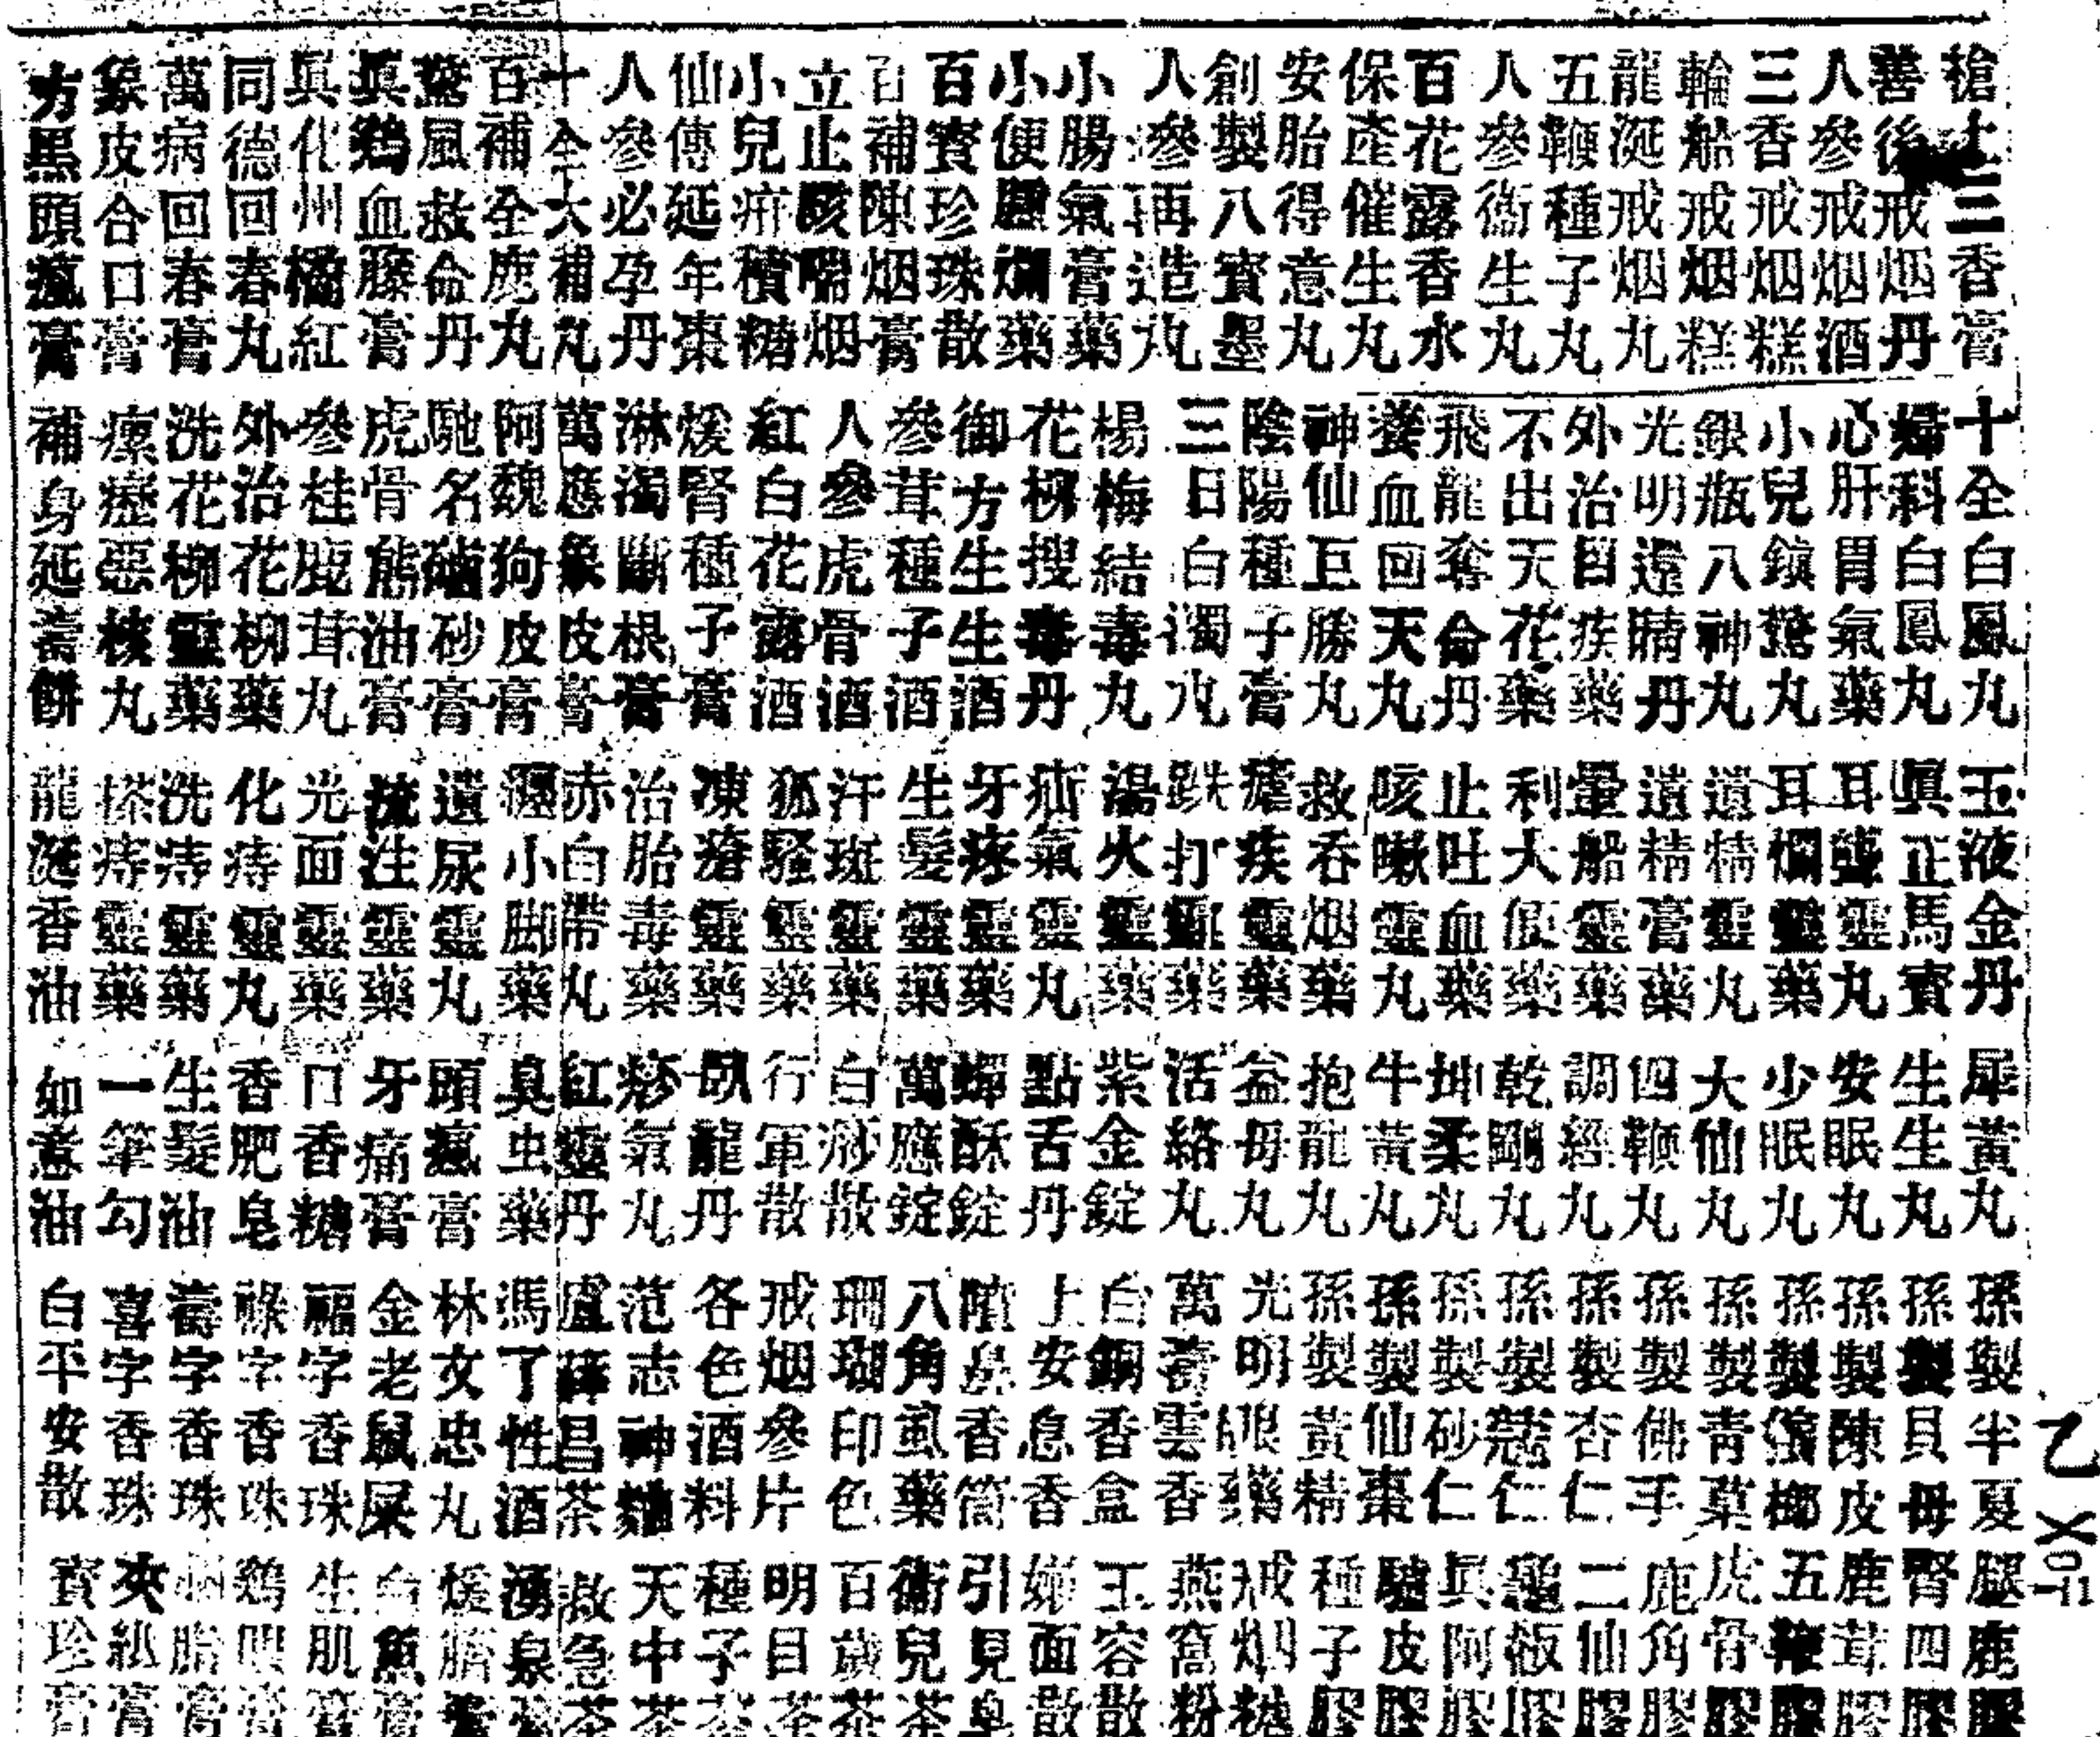 槍上三香膏
善後戒烟丹
人參戒烟酒
三香戒烟糕
輪船戒烟糕
龍涎戒烟丸
五鞭種子丸
人參衞生丸
百花露香水
保產催生丸
安胎得意丸
創製八寳墨
人參再造丸
小腸氣膏藥
小便腫爛藥
百寳珍珠散
百補陳烟膏
立止咳喘烟
小兒疳積糖
仙傳延年棗
人參必孕丹
十全大補丸
百補全鹿丸
驚風救命丹
眞鷄血藤膏
眞化州橘紅
同德回春丸
萬病回春膏
象皮合口膏
方黑頭瘋膏
十全白鳳丸
婦科白鳳丸
心肝胃氣藥
小兒鎮驚丸
銀瓶八神丸
光明還睛丹
外治目疾藥
不出天花藥
飛龍奪命丹
養血回天丸
神仙巨勝丸
陰陽種子膏
三日白濁丸
楊梅結毒丸
花柳搜毒丹
御方生生酒
參茸種子酒
人參虎骨酒
紅白花露酒
煖腎種子膏
淋濁斷根膏
萬應象皮膏
阿魏狗皮膏
馳名硇砂膏
虎骨熊油膏
參桂鹿茸丸
外治花柳藥
洗花柳靈藥
瘰癧惡核丸
補身延壽餅
玉液金丹
眞正馬寳
耳聾靈丸
耳爛靈藥
遺精靈丸
遺精膏藥
暈船靈藥
利大便藥
止吐血藥
咳嗽靈丸
救吞烟藥
瘧疾靈藥
跌打靈藥
湯火靈藥
疝氣靈丸
牙疼靈藥
生髮靈藥
汗斑靈藥
狐騷靈藥
凍瘡靈藥
治胎毒藥
赤白帶丸
纏小脚藥
遺尿靈丸
疣注靈藥
光面靈藥
化痔靈丸
洗痔靈藥
搽痔靈藥
龍涎香油
犀黃丸
生生丸
安眠丸
少眠丸
大仙丸
四鞭丸
調經丸
乾剛丸
坤柔丸
牛黃丸
抱龍丸
益母丸
活絡丸
紫金錠
點舌丹
蟾酥錠
萬應錠
白痧散
行軍散
臥龍丹
痧氣丸
紅靈丹
臭虫藥
頭瘋膏
牙痛膏
口香糖
香肥皂
生髮油
一筆勾
如意油
孫製半夏
孫製貝母
孫製陳皮
孫製檳榔
孫製青菓
孫製佛手
孫製杏仁
孫製蔻仁
孫製砂仁
孫製仙棗
孫製黃精
光明眼藥
萬壽雲香
白銅香盒
上安息香
聞鼻香筒
八角虱藥
珊瑚印色
戒烟參片
各色酒料
范志神麯
盧薛昌茶
馮了性酒
林文忠丸
金老鼠屎
福字香珠
祿字香珠
壽字香珠
喜字香珠
白平安散
腿鹿膠
腎四膠
鹿茸膠
五鞭膠
虎骨膠
鹿角膠
二仙膠
龜板膠
眞阿膠
驢皮膠
種子膠
戒烟糖
燕窩粉
玉容散
嫩面散
引見皂
衞兒茶
百歲茶
明目茶
種子茶
天中茶
救急茶
湧泉膏
煖臍膏
魚膏
生肌膏
鷄眼膏
腦脂膏
夾紙膏
寳珍膏
乙